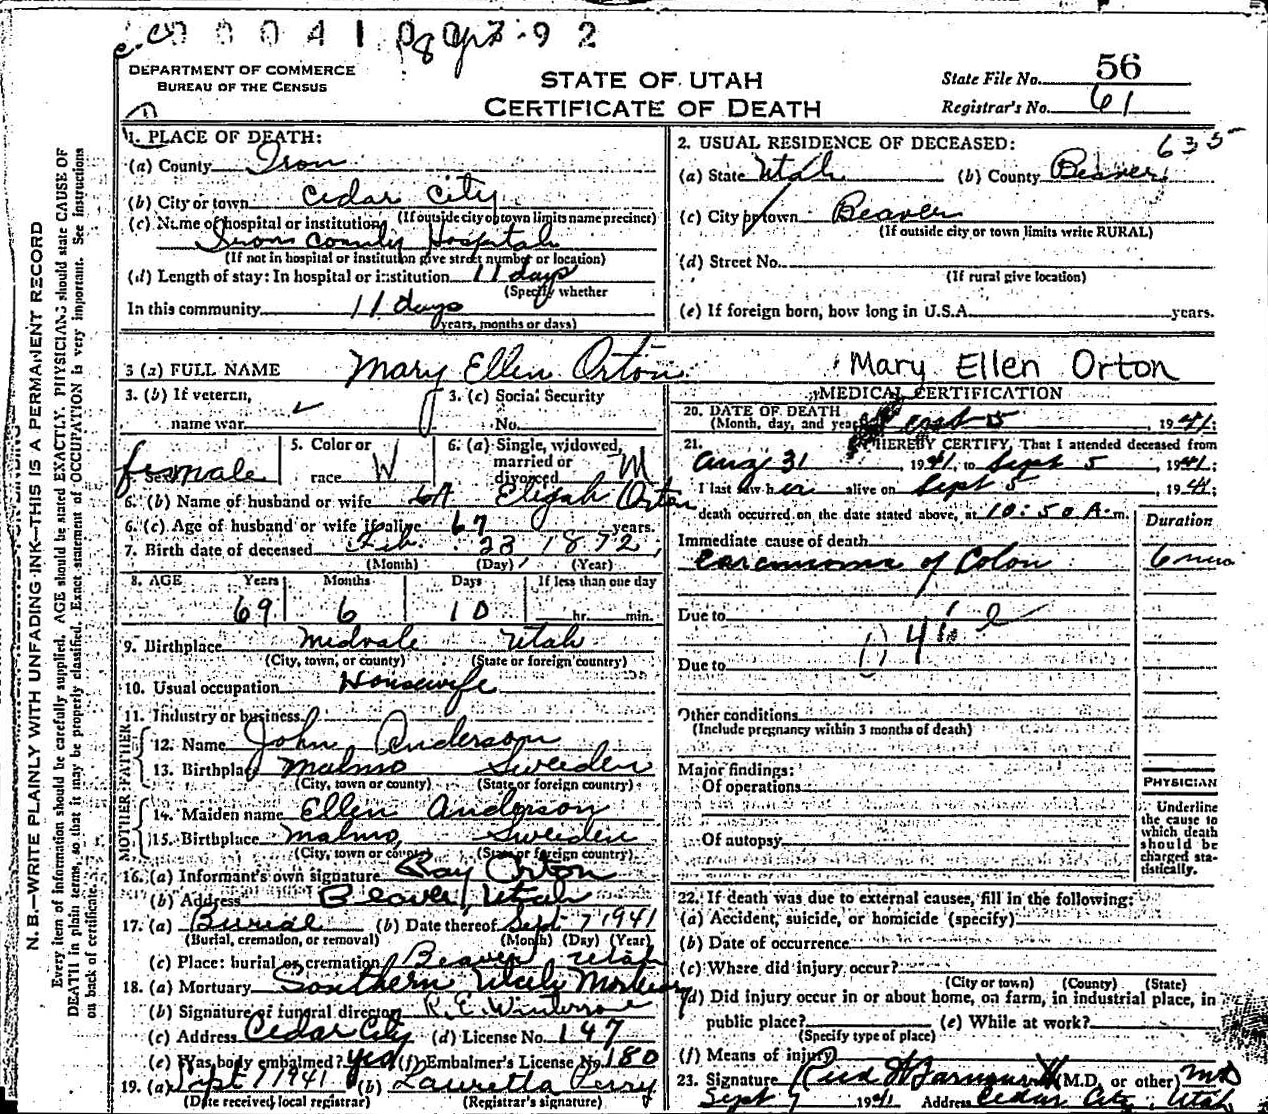 DEPARTMENT OF COMMERCE
BUREAU OF THE CENSUS
STATE OF UTAH
CERTIFICATE OF DEATH
State File No. 56
Registrar's No. 61
N. B.—WRITE PLAINLY WITH UNFADING INK—THIS IS A PERMANENT RECORD
Every item of information should be carefully supplied. AGE should be stated EXACTLY. PHYSICIANS should state CAUSE OF
DEATH in plain terms, so that it may be properly classified. Exact statement of OCCUPATION is very important. See instructions
on back of certificate.
1. PLACE OF DEATH:
(a) County Iron
(b) City or town Cedar City
(If outside city or town limits name precinct)
(c) Name of hospital or institution
Iron County Hospital
(If not in hospital or institution give street number or location)
(d) Length of stay: In hospital or institution 11 days
(Specify whether
In this community 11 days
years, months or days)
2. USUAL RESIDENCE OF DECEASED: 635
(a) State Utah (b) County Beaver
(c) City or town Beaver
(If outside city or town limits write RURAL)
(d) Street No.
(If rural give location)
(e) If foreign born, how long in U.S.A. years.
3 (a) FULL NAME Mary Ellen Orton Mary Ellen Orton
3. (b) If veteran,
name war
3. (c) Social Security
No.
4. Sex female
5. Color or
race W
6. (a) Single, widowed,
married or
divorced M
6. (b) Name of husband or wife Elijah Orton
6. (c) Age of husband or wife if alive 67 years.
7. Birth date of deceased Feb. 23, 1872
(Month) (Day) (Year)
8. AGE Years Months Days If less than one day
69 6 10 hr. min.
9. Birthplace Midvale Utah
(City, town, or county) (State or foreign country)
10. Usual occupation Housewife
11. Industry or business
FATHER
12. Name John Anderson
13. Birthplace Malmo Sweeden
(City, town or county) (State or foreign country)
MOTHER
14. Maiden name Ellen Anderson
15. Birthplace Malmo, Sweeden
(City, town or county) (State or foreign country)
16. (a) Informant's own signature Ray Orton
(b) Address Beaver, Utah
17. (a) Burial (b) Date thereof Sept 7 1941
(Burial, cremation, or removal) (Month) (Day) (Year)
(c) Place: burial or cremation Beaver Utah
18. (a) Mortuary Southern Utah Mortuary
(b) Signature of funeral director
(c) Address Cedar City (d) License No. 147
(e) Was body embalmed? yes (f) Embalmer's License No. 180
19. (a) Sept 7 1941 (b) Lauretta Perry
(Date received local registrar) (Registrar's signature)
MEDICAL CERTIFICATION
20. DATE OF DEATH
(Month, day, and year) Sept 5, 1941;
21. I HEREBY CERTIFY, That I attended deceased from
Aug 31, 1941, to Sept 5, 1941;
I last saw her alive on Sept 5, 1941;
death occurred on the date stated above, at 10:50 A.m.
Duration
Immediate cause of death
Carcinoma of Colon 6 mos
Due to
Due to
Other conditions
(Include pregnancy within 3 months of death)
Major findings:
Of operations
Of autopsy
PHYSICIAN
Underline
the cause to
which death
should be
charged sta-
tistically.
22. If death was due to external causes, fill in the following:
(a) Accident, suicide, or homicide (specify)
(b) Date of occurrence
(c) Where did injury occur?
(City or town) (County) (State)
(d) Did injury occur in or about home, on farm, in industrial place, in
public place? (e) While at work?
(Specify type of place)
(f) Means of injury
23. Signature (M.D. or other) MD
Sept 7 1941 Address Cedar City, Utah